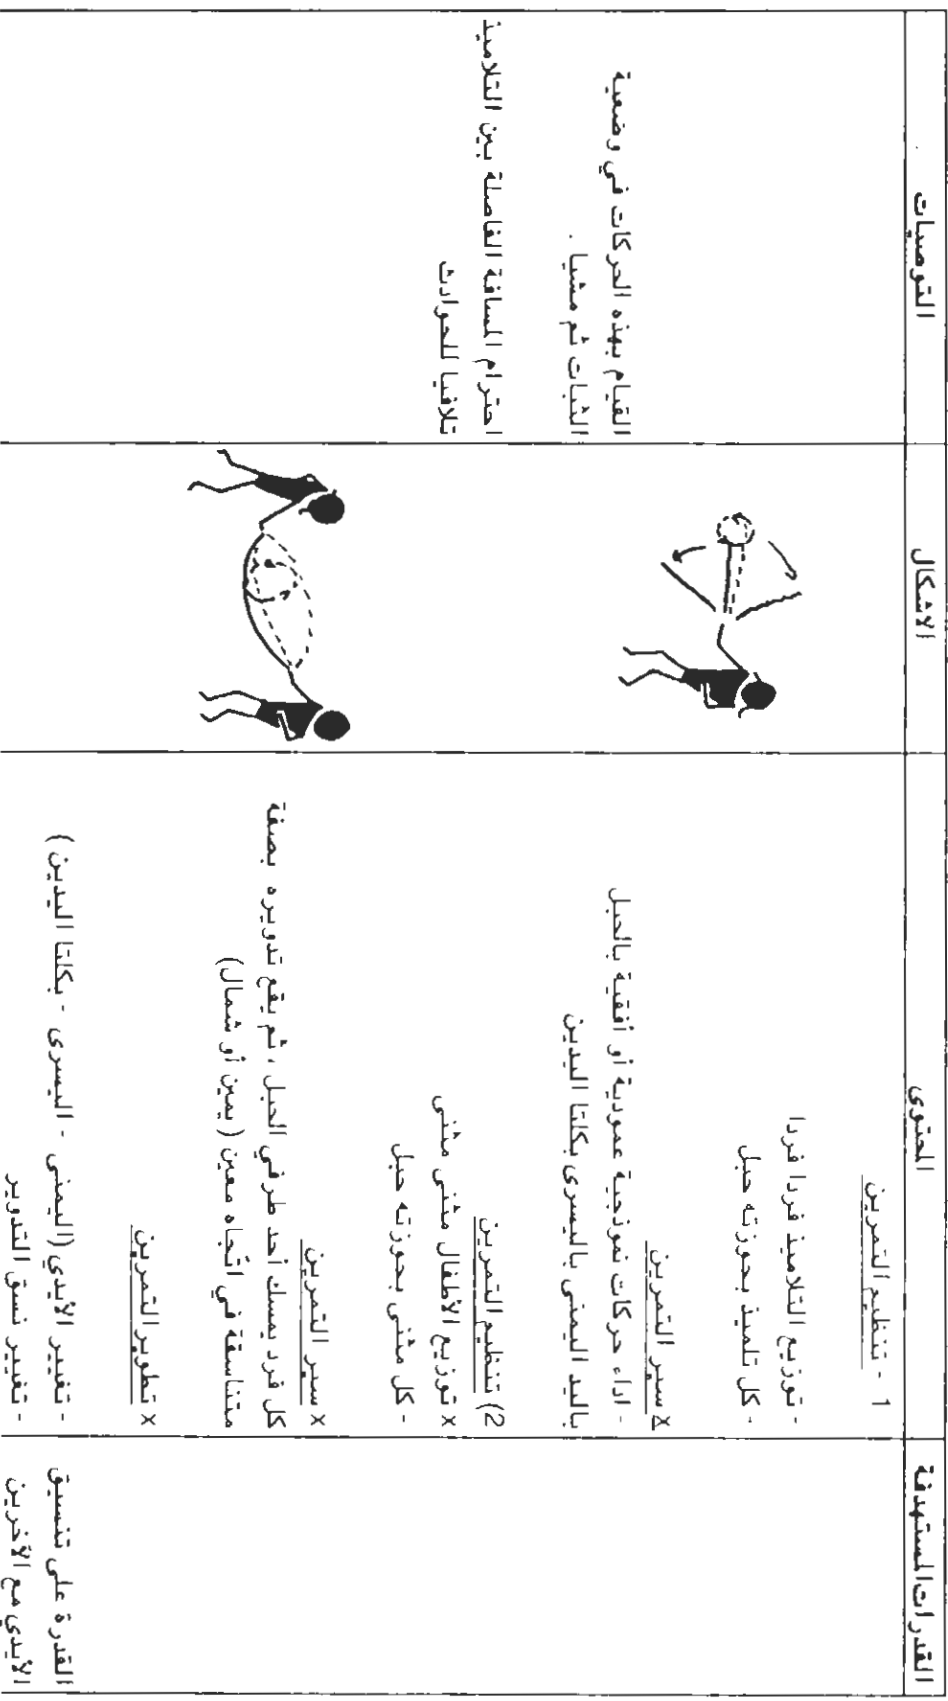 القدرات المستهدفة
المحتوى
الاشكال
التوصيات
1 - تنظيم التمرين
- توزيع التلاميذ فردا فردا
- كل تلميذ بحوزته حبل
x سير التمرين
- اداء حركات نموذجية عمودية أو أفقية بالحبل
باليد اليمنى باليسرى بكلتا اليدين
2) تنظيم التمرين
x توزيع الأطفال مثنى مثنى
- كل مثنى بحوزته حبل
x سير التمرين
كل فرد يمسك أحد طرفي الحبل ، ثم يقع تدويره بصفة
متناسقة في اتجاه معين (يمين أو شمال)
x تطوير التمرين
- تغيير الأيدي (اليمنى - اليسرى - بكلتا اليدين)
- تغيير نسق التدوير
القدرة على تنسيق
الأيدي مع الآخرين
القيام بهذه الحركات في وضعية
الثبات ثم مشيا .
احترام المسافة الفاصلة بين التلاميذ
تلافيا للحوادث